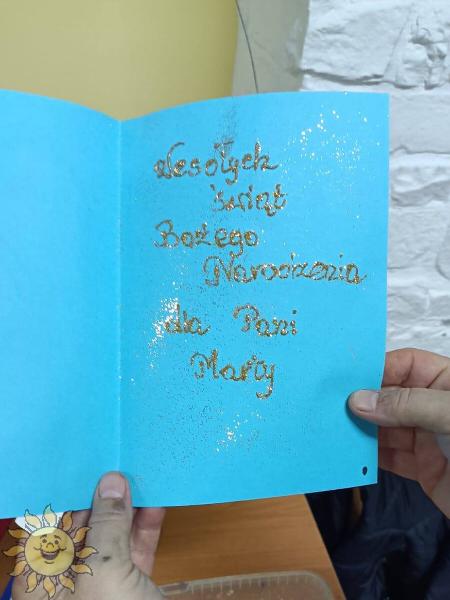 Wesołych
świąt
Bożego
Narodzenia
dla Pani
Marty